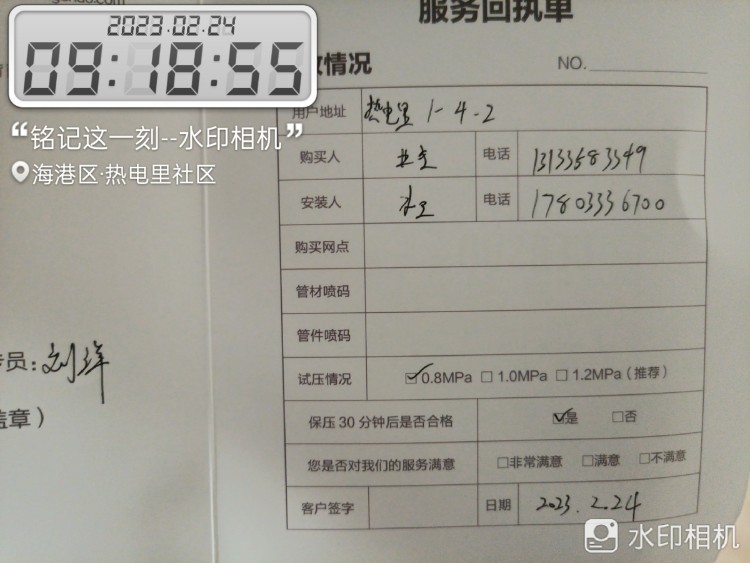 服务回执单
2023.02.24
09:18:55
“铭记这一刻--水印相机”
海港区·热电里社区
情况
NO.
用户地址 热电里 1-4-2
购买人 业主 电话 13133583349
安装人 水工 电话 17803336700
购买网点
管材喷码
管件喷码
试压情况 ☑0.8MPa □1.0MPa □1.2MPa(推荐)
保压30分钟后是否合格 ☑是 □否
您是否对我们的服务满意 □非常满意 □满意 □不满意
客户签字 日期 2023.2.24
员:刘洋
盖章)
水印相机